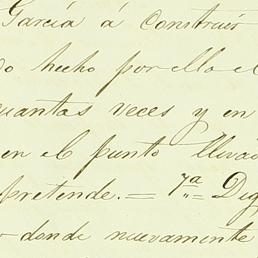 García á Construir
do hecho por ello el
cuantas veces y en
en el punto lleva
pretende.= 7ª Dig
donde nuevamente